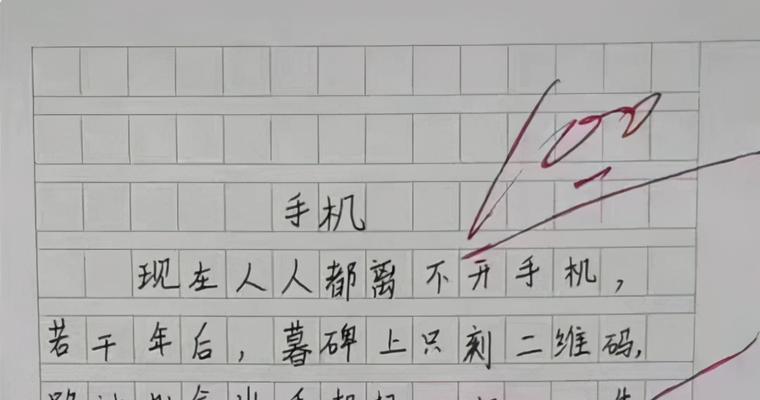 100
手机
现在人人都离不开手机，
若干年后，暮碑上只刻二维码，